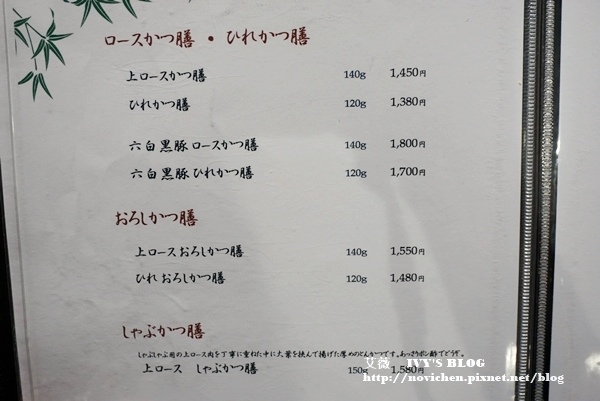 ロースかつ膳 • ひれかつ膳
上ロースかつ膳 140g 1,450円
ひれかつ膳 120g 1,380円
六白黒豚 ロースかつ膳 140g 1,800円
六白黒豚 ひれかつ膳 120g 1,700円
おろしかつ膳
上ロース おろしかつ膳 140g 1,550円
ひれ おろしかつ膳 120g 1,480円
しゃぶかつ膳
しゃぶしゃぶ用の上ロース肉を丁寧に重ねた中に大葉を挟んで揚げた厚めのとんかつです。あっさりポン酢でどうぞ。
上ロース しゃぶかつ膳 150g 1,580円
艾薇 IVY'S BLOG
http://novichen.pixnet.net/blog